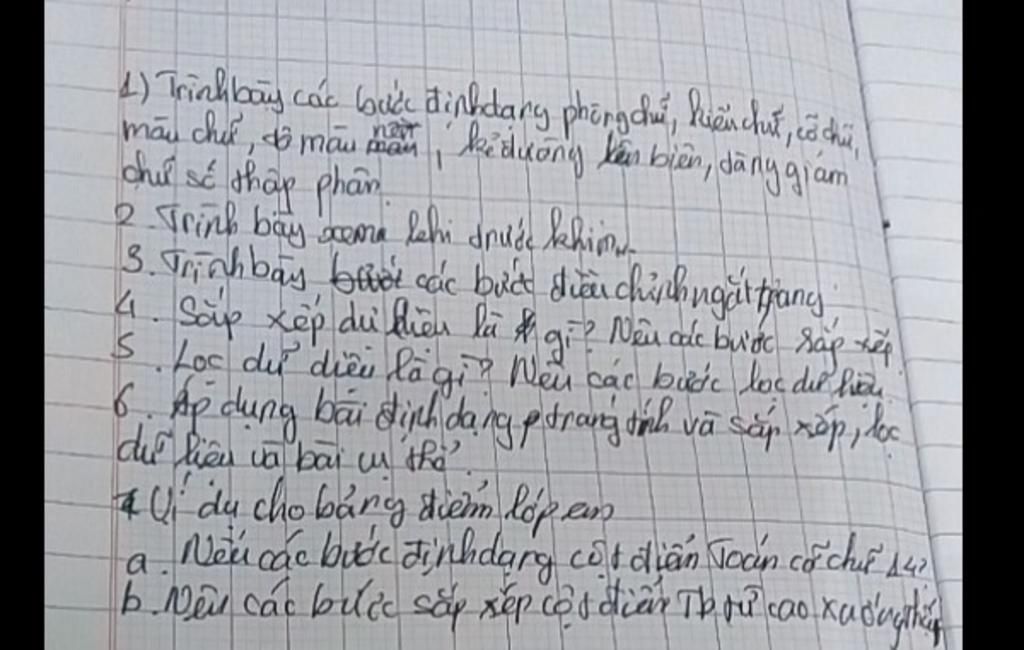 1) Trình bày các bước định dạng phông chữ, kiểu chữ, cỡ chữ,
màu chữ, tô màu nền, kẻ đường biên, tăng giảm
chữ số thập phân.
2. Trình bày xem khi trước khi in.
3. Trình bày các bước điều chỉnh ngắt trang
4. Sắp xếp dữ liệu là gì? Nêu các bước sắp xếp
5. Lọc dữ liệu là gì? Nêu các bước lọc dữ liệu.
6. Áp dụng bài định dạng trang tính và sắp xếp, lọc
dữ liệu và bài cụ thể.
* Ví dụ cho bảng điểm lớp em
a. Nêu các bước định dạng cột điểm Toán cỡ chữ 14?
b. Nêu các bước sắp xếp cột điểm Tb từ cao xuống thấp